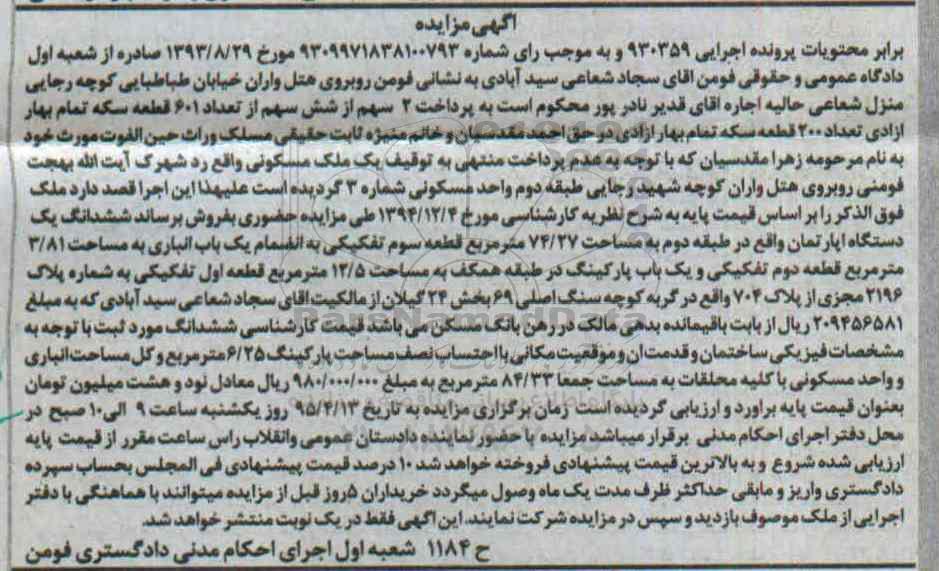 آگهی مزایده
برابر محتویات پرونده اجرایی ۹۳۰۳۵۹ و به موجب رای شماره ۹۳۰۹۹۷۱۸۳۸۱۰۰۷۹۳ مورخ ۱۳۹۳/۸/۲۹ صادره از شعبه اول
دادگاه عمومی و حقوقی فومن اقای سجاد شعاعی سید آبادی به نشانی فومن روبروی هتل واران خیابان طباطبایی کوچه رجایی
منزل شعاعی حالیه اجاره اقای قدیر نادر پور محکوم است به پرداخت ۲ سهم از شش سهم از تعداد ۶۰۱ قطعه سکه تمام بهار
ازادی تعداد ۲۰۰ قطعه سکه تمام بهار ازادی در حق احمد مقدسیان و خانم منیژه ثابت حقیقی مسلک وراث حین الفوت مورث خود
به نام مرحومه زهرا مقدسیان که با توجه به عدم پرداخت منتهی به توقیف یک ملک مسکونی واقع رد شهرک آیت الله بهجت
فومنی روبروی هتل واران کوچه شهید رجایی طبقه دوم واحد مسکونی شماره ۳ گردیده است علیهذا این اجرا قصد دارد ملک
فوق الذکر را بر اساس قیمت پایه به شرح نظریه کارشناسی مورخ ۱۳۹۴/۱۲/۴ طی مزایده حضوری بفروش برساند ششدانگ یک
دستگاه اپارتمان واقع در طبقه دوم به مساحت ۷۴/۲۷ مترمربع قطعه سوم تفکیکی به انضمام یک باب انباری به مساحت ۳/۸۱
مترمربع قطعه دوم تفکیکی و یک باب پارکینگ در طبقه همکف به مساحت ۱۲/۵ مترمربع قطعه اول تفکیکی به شماره پلاک
۲۱۹۶ مجزی از پلاک ۷۰۴ واقع در گربه کوچه سنگ اصلی ۶۹ بخش ۲۴ گیلان از مالکیت اقای سجاد شعاعی سید آبادی که به مبلغ
۲۰۹۴۵۶۵۸۱ ریال از بابت باقیمانده بدهی مالک در رهن بانک مسکن می باشد قیمت کارشناسی ششدانگ مورد ثبت با توجه به
مشخصات فیزیکی ساختمان و قدمت آن و موقعیت مکانی با احتساب نصف مساحت پارکینگ ۶/۲۵ مترمربع و کل مساحت انباری
و واحد مسکونی با کلیه ملحقات به مساحت جمعا ۸۴/۳۳ مترمربع به مبلغ ۹۸۰/۰۰۰/۰۰۰ ریال معادل نود و هشت میلیون تومان
بعنوان قیمت پایه براورد و ارزیابی گردیده است زمان برگزاری مزایده به تاریخ ۹۵/۴/۱۳ روز یکشنبه ساعت ۹ الی ۱۰ صبح در
محل دفتر اجرای احکام مدنی برقرار میباشد مزایده با حضور نماینده دادستان عمومی وانقلاب راس ساعت مقرر از قیمت پایه
ارزیابی شده شروع و به بالاترین قیمت پیشنهادی فروخته خواهد شد ۱۰ درصد قیمت پیشنهادی فی المجلس بحساب سپرده
دادگستری واریز و مابقی حداکثر ظرف مدت یک ماه وصول میگردد خریداران ۵روز قبل از مزایده میتوانند با هماهنگی با دفتر
اجرایی از ملک موصوف بازدید و سپس در مزایده شرکت نمایند. این اگهی فقط در یک نوبت منتشر خواهد شد.
ح ۱۱۸۴ شعبه اول اجرای احکام مدنی دادگستری فومن
ParsNamadData